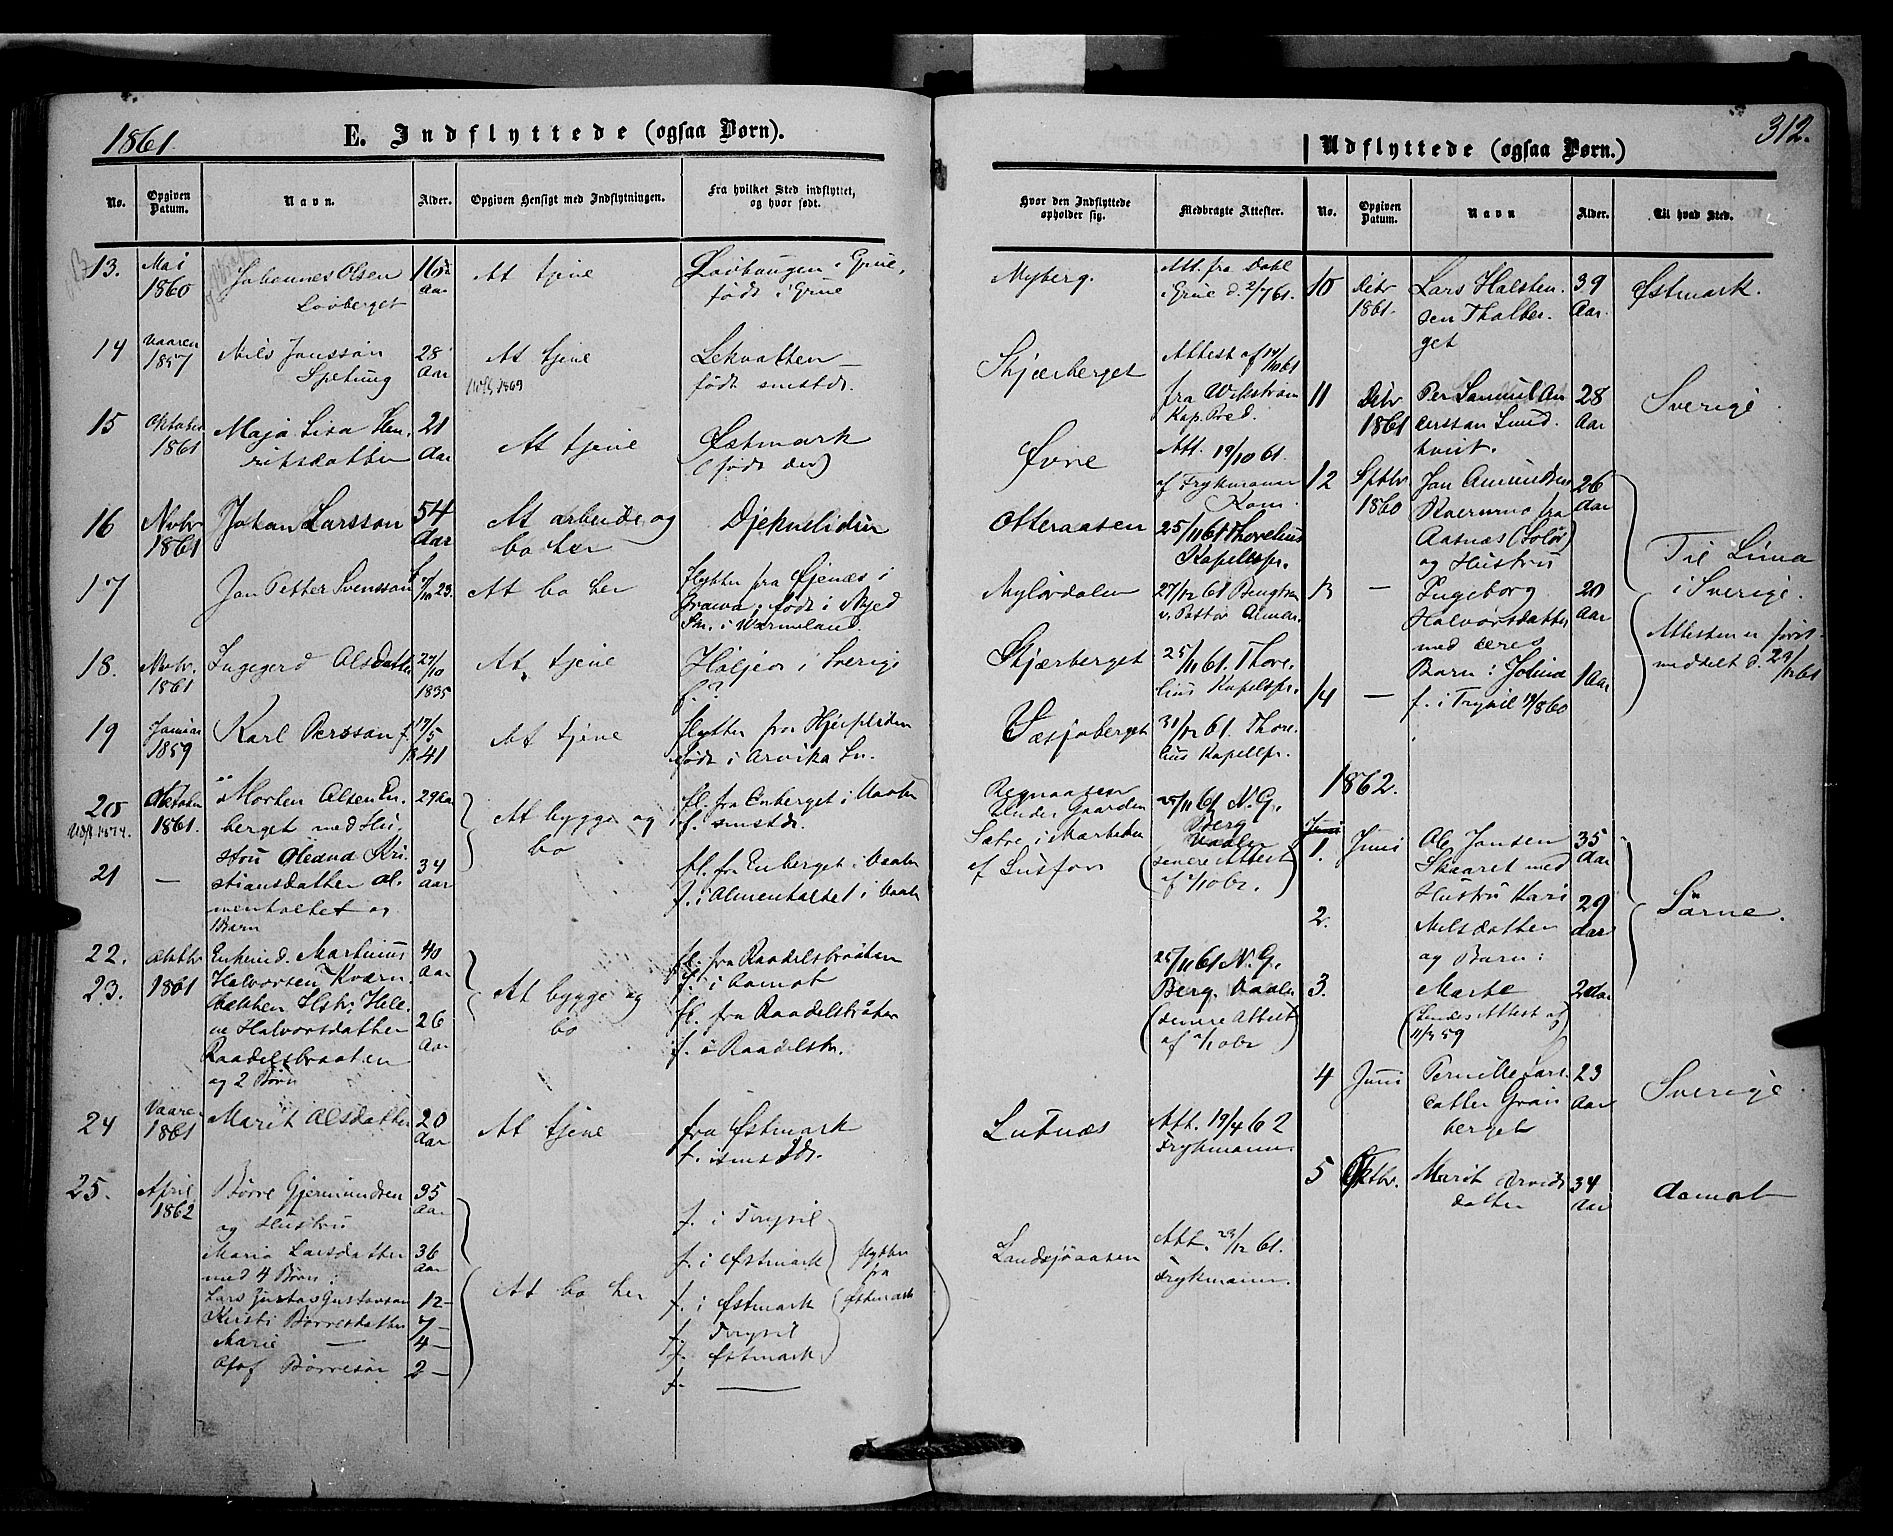 1861.
E. Indflyttede (ogsaa Børn).
No.
Opgiven Datum.
Navn.
Alder.
Opgiven Hensigt med Indflytningen.
Fra hvilket Sted indflyttet, og hvor født.
13. Mai Johannes Olsen 16 At tjene i Grue,
1860 Lovberget Aar født i Grue
14 Vaaren Nils Jonsson 28 At tjene Lekvatten
1857 Aar født smstds.
15 Oktober Maja Lisa Hen- 21 At tjene Østmark
1861 riksdatter Aar (født der)
16 Novbr Johan Larsson 54 At arbeide og
1861 Aar bo her
17 Jan Petter Svensson f. 23. At bo her flytter fra i
født i
i Wermeland.
18. Novbr. Ingegerd Olsdatter 27/10 At tjene Höljes i Sverige
1861 1835 f. ?
19 Januar Karl Persson f. 17/5 At tjene flytter fra
1859 41 født i Arvika Sn.
20 Oktober Morten Olsen En- 29 Aar At bygge og fl. fra Enberget i Vaaler
1861. berget med Hu- bo f. smstds.
stru Oleana Kri- 34 fl. fra Enberget i Vaaler
21 — stiansdatter Al- Aar f. i Almenholtet i Vaaler
menholtet og
1 Barn
22. Oktbr Enkemd. Martinus 40 fl. fra Raadelsbraaten
23. 1861 Halvorsen Kværn- Aar At bygge og f. i Aamot
bækken Hstr. Hele- bo fl. fra Raadelsbraaten
ne Halvorsdatter 26 f. i Raadelsbr.
Raadelsbraaten Aar
og 2 Børn
24 Vaaren Marit Olsdatter 20 At tjene fra Østmark
1861 Aar f. smstds.
25. April Børre Gjermundsen 35 f. i Trysil
1862 og Hustru Aar
Maria Larsdatter 36 f. i Østmark flytter
med 4 Børn: Aar At bo her fra
Lars Gustavsson 12 — f. i Østmark Østmark
Kirsti Børresdatter 7 — f. Trysil
Marie — 4 — f. Østmark
Olof Børresøn 2 — f. —
Hvor den Indflyttede opholder sig.
Medbragte Attester.
Nyberg. Att. fra Dahl
i Grue d. 2/7 61.
Skjærberget Attest af 61
fra Wikström
Kap. Pred.
Øvre Att. 19/10 61.
af Frykmann
Kom.
Otteraasen 25/11 61 Thorelius
Kapelspr.
Nylørdalen 27/12 61
v. Pastor
Skjærberget 25/11 61. Thore-
lius Kapelspr.
31/12 61. Thore-
lius Kapelspr.
Regnaasen 25/11 61 N. G.
under Gaarden Berg
Sætre i Vaaler
af Lutfos (senere Attest
af
25/11 61 N. G.
Berg. Vaaler
(senere Attest
af
Lutnæs Att. 19/4 62
Frykmann.
Landsjøaasen Att. 61.
Frykmann.
312.
Udflyttede (ogsaa Børn.)
No.
Opgiven Datum.
Navn
Alder.
Til hvad Sted.
10 Decbr Lars Halsten- 39 Østmark.
1861. sen Thalber- Aar.
get
11 Decbr Per Samuel An- 28 Sverige.
1861 dersson Lund- Aar
kvist.
12 Septbr Jon Amundsen 26
1860 Kværnmo fra Aar
Aasnæs (Solør) Til Lima
og Hustru i Sverige.
13 — Ingeborg 20
Halvorsdatter Aar Attesten er først
med deres meddelt d. 61
Barn: Jolina 1 Aar
14 — f. i Trysil 60
1862.
1. Juni Ole Jonsen 35
Skaaret med Aar
Hustru Kari 29 Särne.
2. Nilsdatter Aar
og Barn:
3. Marte 2 Aar
(Attest af
11/3 59
4 Juni Pernille Lars- 23 Sverige.
datter Grau- Aar
berget
5 Oktbr. Marit Arvids- 34 Aamot
datter Aar